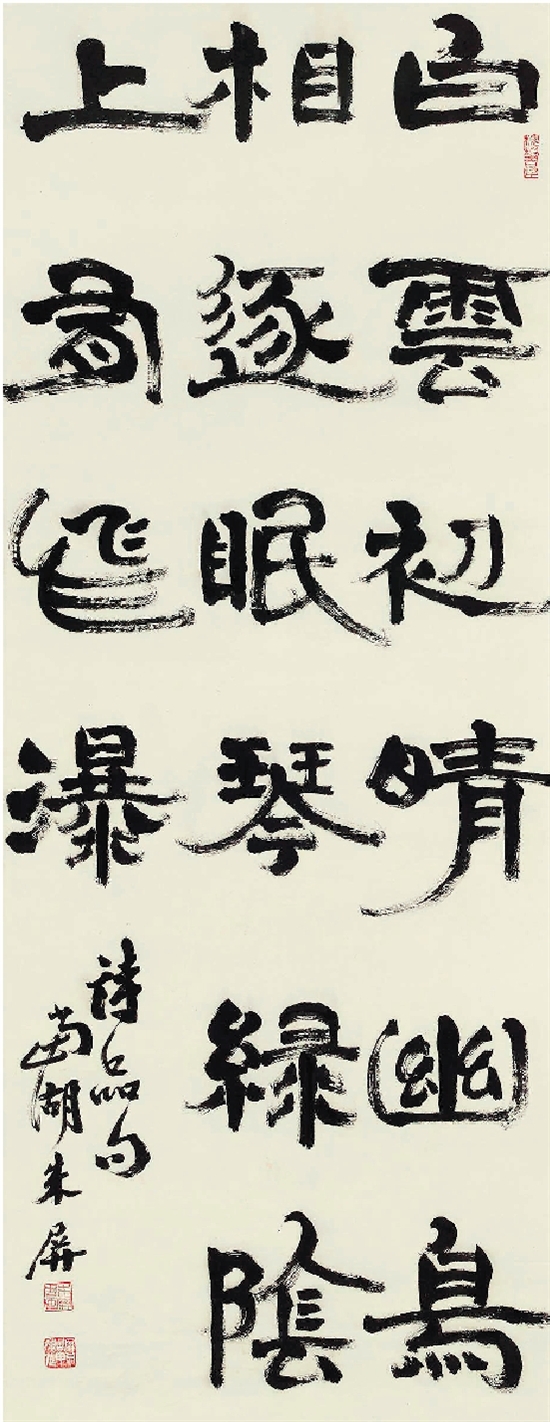 白雲初晴幽鳥
相逐眠琴緑陰
上有飛瀑
詩品句
湖朱屏